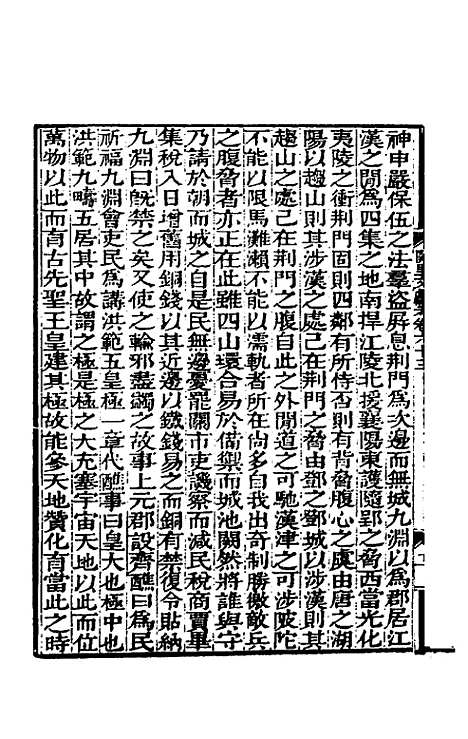 神申嚴保伍之法羣盜屏息荊門爲次邊而無城九淵以爲郡居江
漢之間爲四集之地南捍江陵北援襄陽東護隨郢之脅西當光化
夷陵之衝荊門固則四鄰有所恃否則有背脅腹心之虞由唐之湖
陽以趨山則其涉漢之處己在荊門之脅由鄧之鄧城以涉漢則其
趨山之處己在荊門之腹自此之外間道之可馳漢津之可涉陂陀
不能以限馬灘瀨不能以濡軌者所在尙多自我出奇制勝徼敵兵
之腹脅者亦正在此雖四山環合易於備禦而城池闕然將誰與守
乃請於朝而城之自是民無邊憂罷關市吏譏察而減民稅商賈畢
集稅入日增舊用銅錢以其近邊以鐵錢易之而銅有禁復令貼納
九淵曰旣禁之矣又使之輸邪盡蠲之故事上元郡設齊醮曰爲民
祈福九淵會吏民爲講洪範五皇極一章代醮事曰皇大也極中也
洪範九疇五居其中故謂之極是極之大充塞宇宙天地以此而位
萬物以此而育古先聖王皇建其極故能參天地贊化育當此之時